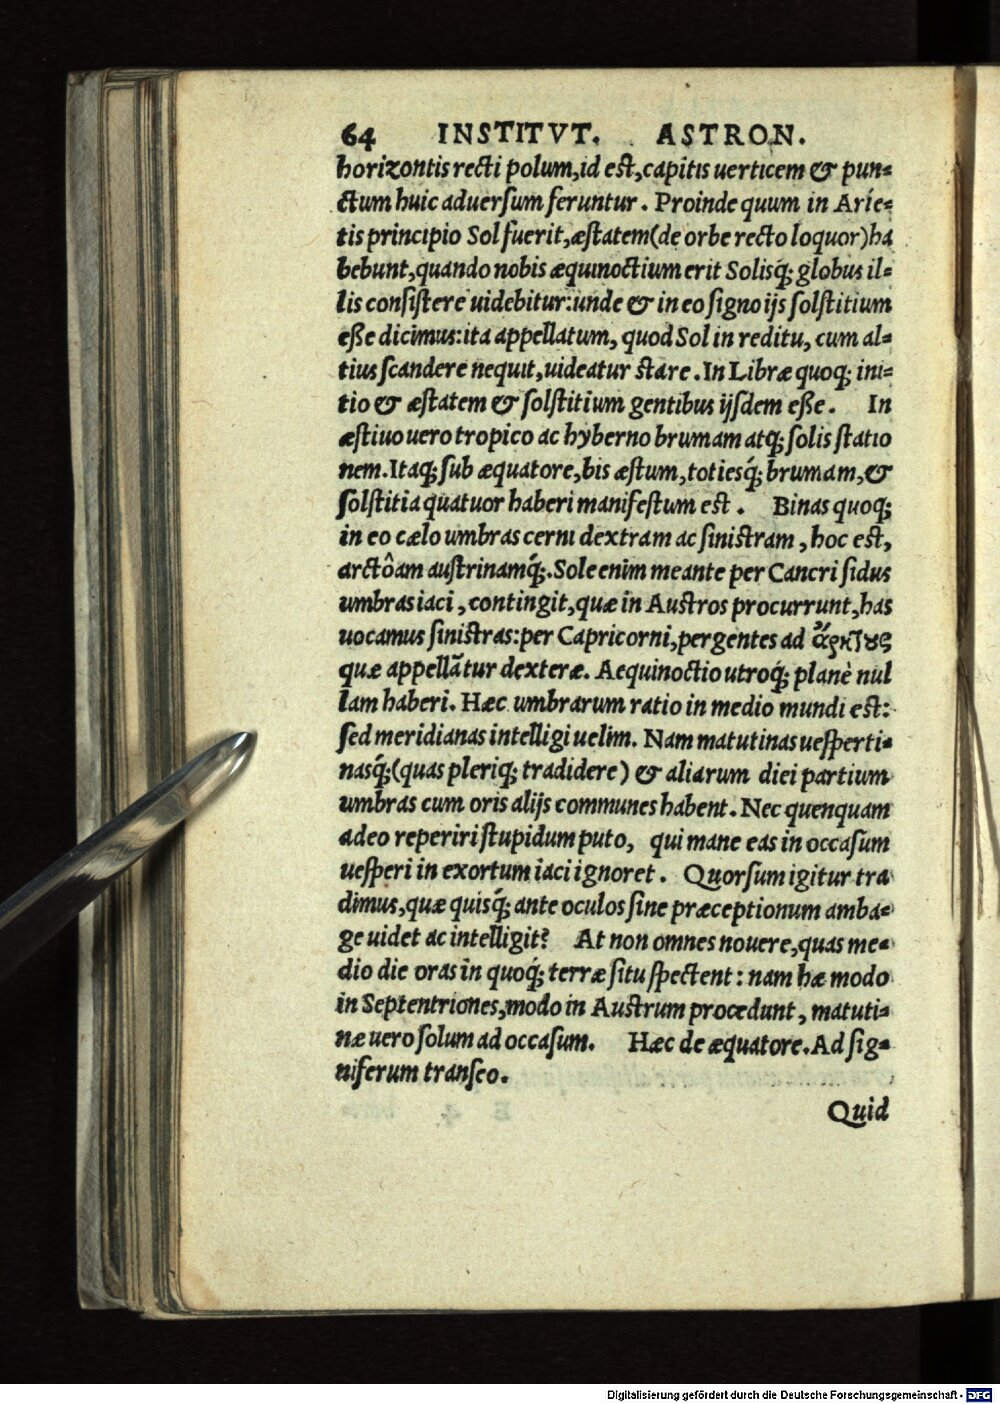 64 INSTITVT. ASTRON.
horizontis recti polum, id est, capitis uerticem & pun=
ctum huic aduersum feruntur. Proinde quum in Arie=
tis principio Sol fuerit, æstatem (de orbe recto loquor) ha
bebunt, quando nobis æquinoctium erit Solisq́; globus il=
lis consistere uidebitur: unde & in eo signo ijs solstitium
esse dicimus: ita appellatum, quod Sol in reditu, cum al=
tius scandere nequit, uideatur stare. In Libræ quoq; ini=
tio & æstatem & solstitium gentibus ijsdem esse. In
æstiuo uero tropico ac hyberno brumam atq; solis statio
nem. Itaq; sub æquatore, bis æstum, totiesq́; brumam, &
solstitia quatuor haberi manifestum est. Binas quoq;
in eo cælo umbras cerni dextram ac sinistram, hoc est,
arctôam austrinamq́;. Sole enim meante per Cancri sidus
umbras iaci, contingit, quæ in Austros procurrunt, has
uocamus sinistras: per Capricorni, pergentes ad ἄρκτους
quæ appellātur dexteræ. Aequinoctio utroq́; planè nul
lam haberi. Hæc umbrarum ratio in medio mundi est:
sed meridianas intelligi uelim. Nam matutinas uesperti=
nasq́; (quas pleriq; tradidere) & aliarum diei partium
umbras cum oris alijs communes habent. Nec quenquam
adeo reperiri stupidum puto, qui mane eas in occasum
uesperi in exortum iaci ignoret. Quorsum igitur tra
dimus, quæ quisq́; ante oculos sine præceptionum amba=
ge uidet ac intelligit? At non omnes nouere, quas me=
dio die oras in quoq́; terræ situ spectent: nam hæ modo
in Septentriones, modo in Austrum procedunt, matuti=
næ uero solum ad occasum. Hæc de æquatore. Ad sig=
niferum transeo.
Quid
Digitalisierung gefördert durch die Deutsche Forschungsgemeinschaft - DFG